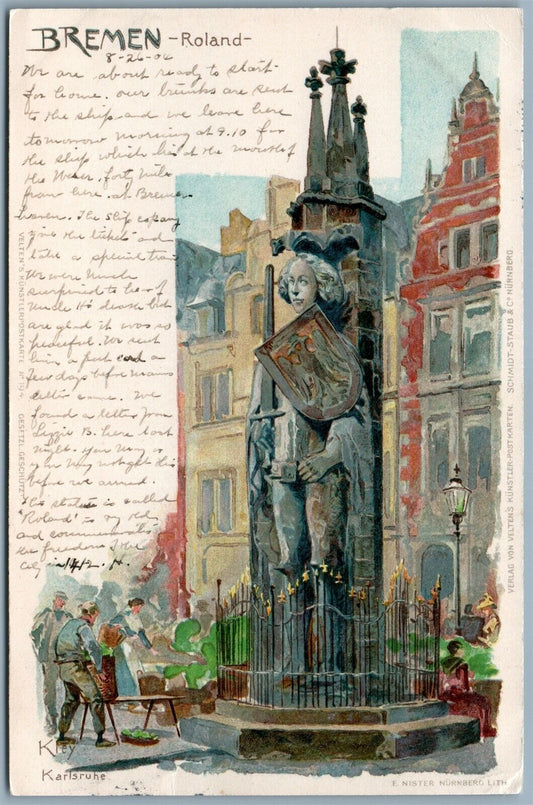 BREMEN -Roland-
8-26-04
We are about ready to start
for home. our trunks are sent
to the ship and we leave here
tomorrow morning at 9.10 for
the ship which lies at the mouth of
the Weser, forty mile
from here, at Breme
haven. The ship company
the tickets and
take a special trai
We were much
surprised to hear of
Uncle H's death but
are glad it was so
peaceful. We sent
him a post card a
few days before mams
letter came. We
found a letter from
Lizzie B. here last
night.
before we arrived.
This statue is called
"Roland" is very old
and commem
freedom of the
city in 1412. H.
VELTEN'S KÜNSTLERPOSTKARTE No 194. GESETZL. GESCHÜTZT
VERLAG VON VELTEN'S KÜNSTLER-POSTKARTEN. SCHMIDT-STAUB & Co NÜRNBERG
Kley
Karlsruhe
E. NISTER NÜRNBERG LITH